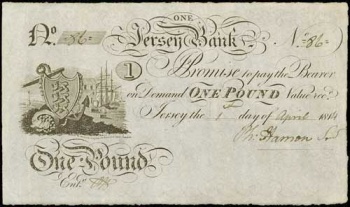 ONE
No. 86 Jersey Bank 86
1 I Promise to pay the Bearer
on Demand ONE POUND Value recd.
Jersey the 1 day of April 1814
One Pound Hamon
Entd.